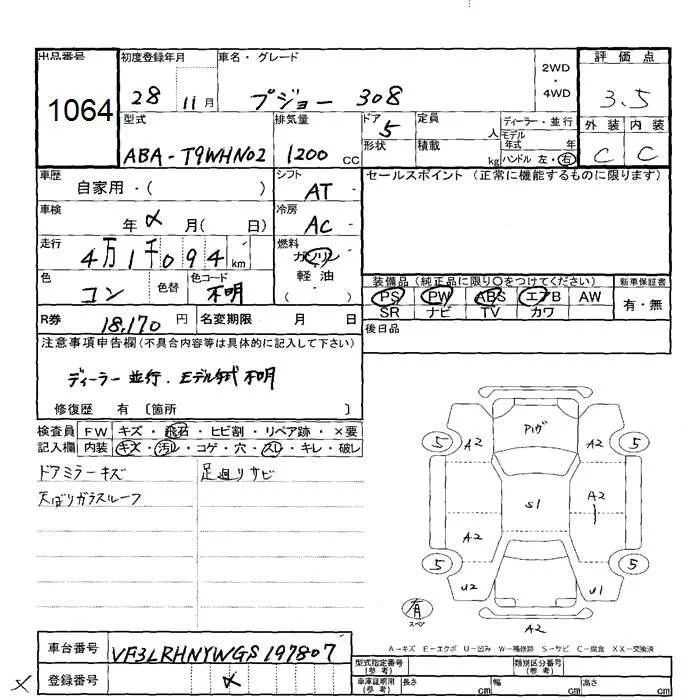 出品番号
1064
初度登録年月
28 11月
車名・グレード
プジョー 308
2WD
・
4WD
評価点
3.5
外装 内装
C C
型式
ABA-T9WHN02
排気量
1200 CC
ドア 5
形状
定員 人
積載 kg
ディーラー・並行
モデル年式 年
ハンドル 左・右
車歴
自家用・( )
シフト
AT
セールスポイント (正常に機能するものに限ります)
車検
年 月( 日)
冷房
AC
走行
4万1千094km
燃料
ガソリン
軽油
( )
色
コン
色替
色コード
不明
装備品(純正品に限り○をつけてください)
PS PW ABS エアB AW
SR ナビ TV カワ
新車保証書
有・無
R券
18,170 円
名変期限 月 日
後日品
注意事項申告欄(不具合内容等は具体的に記入して下さい)
ディーラー並行.モデル年式不明
修復歴 有 〔箇所 〕
検査員 FW キズ・飛石・ヒビ割・リペア跡・×要
記入欄 内装 キズ・汚レ・コゲ・穴・スレ・キレ・破レ
ドアミラーキズ
足廻りサビ
天ばりガラスルーフ
5 A2 A2 5
S1
A2
A2
5 U2 U1 5
有
A2
A-キズ E-エクボ U-凹み W-補修跡 S-サビ C-腐食 XX-交換済
車台番号
VF3LRHNYWGS197807
登録番号
型式指定番号
(参考)
類別区分番号
(参考)
車庫証明用
(参考)
長さ cm
幅 cm
高さ cm